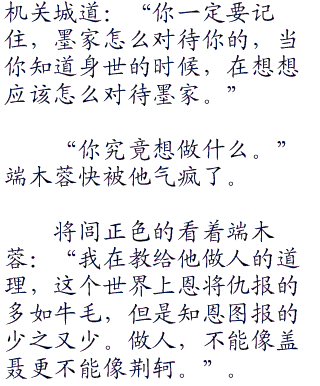 机关城道：“你一定要记
住，墨家怎么对待你的，当
你知道身世的时候，在想想
应该怎么对待墨家。”
“你究竟想做什么。”
端木蓉快被他气疯了。
将闾正色的看着端木
蓉：“我在教给他做人的道
理，这个世界上恩将仇报的
多如牛毛，但是知恩图报的
少之又少。做人，不能像盖
聂更不能像荆轲。”。